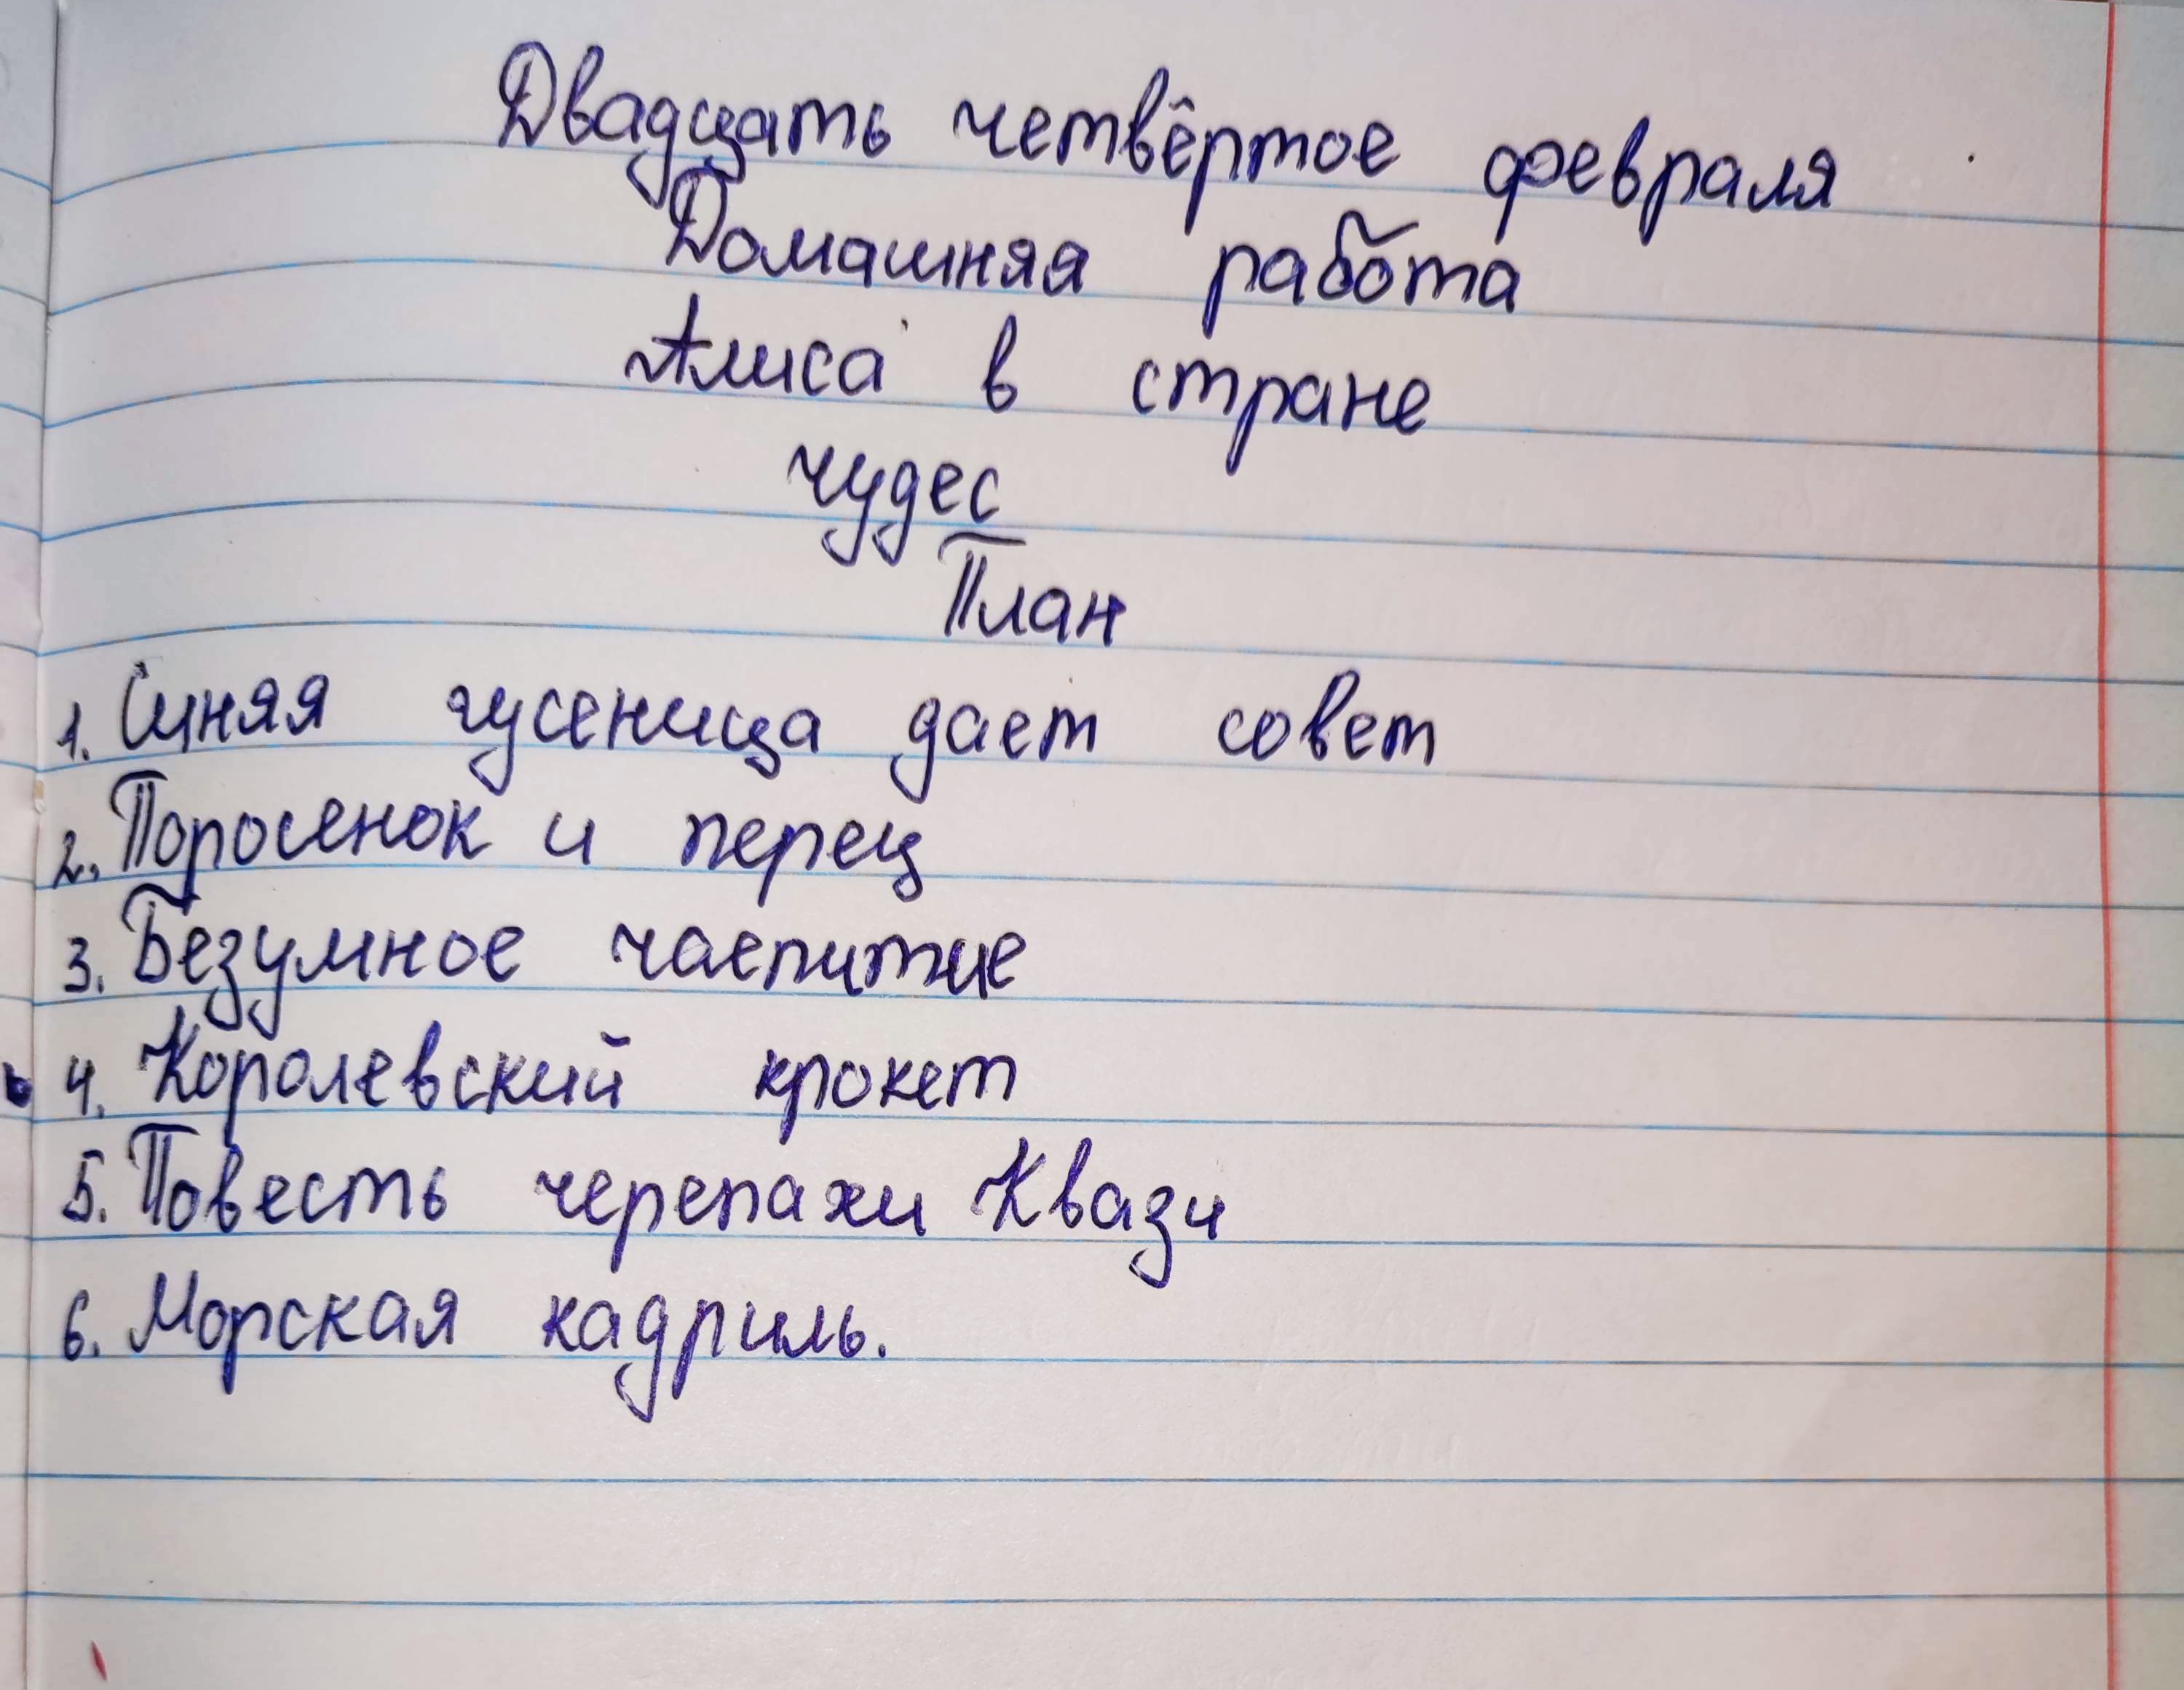 Двадцать четвёртое февраля
Домашняя работа
Алиса в стране
чудес
План
1. Синяя гусеница дает совет
2. Поросенок и перец
3. Безумное чаепитие
4. Королевский крокет
5. Повесть черепахи Квази
6. Морская кадриль.